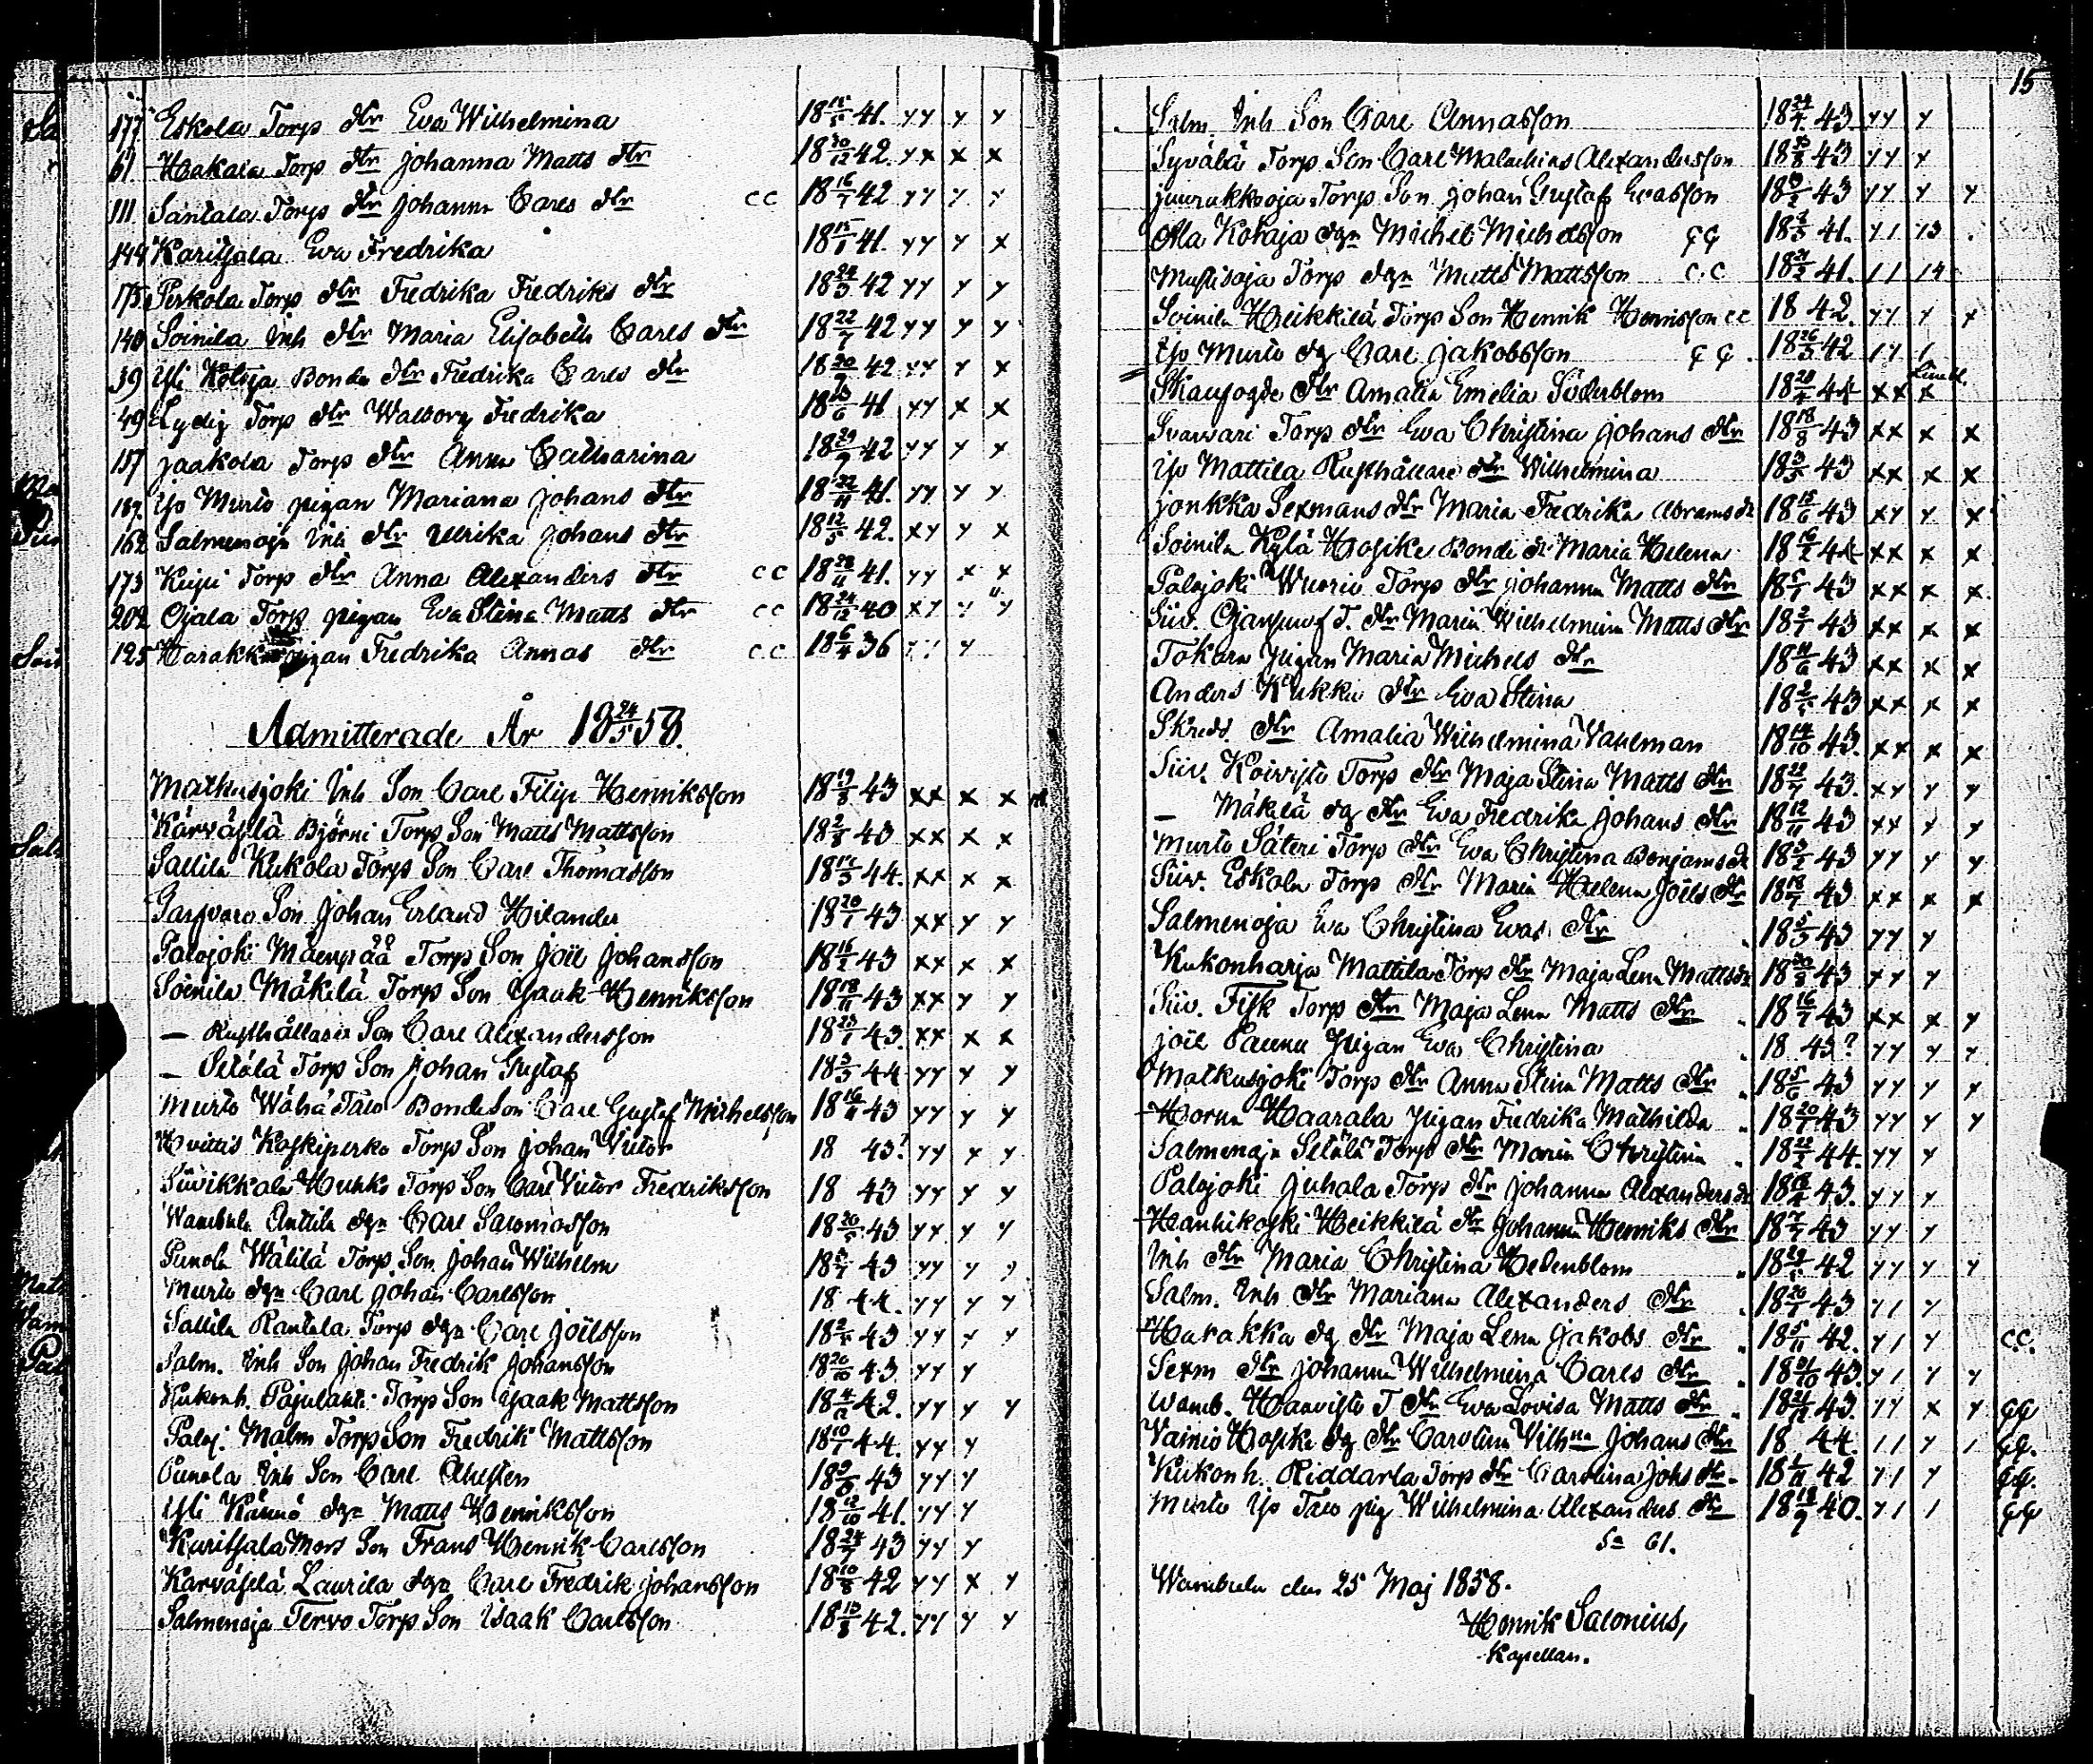 177 Eskola Torp dtr Eva Wilhelmina 18 41. yy y y
61. Hakala Torp dtr Johanna Matts dtr 18 20/12 42. yx x x
111 Santala Torps dtr Johanna Carls dtr cc 18 16/7 42 yy y y
144 Karitsala Eva Fredrika 18 41. yy y x
175 Perkola Torp dtr Fredrika Fredriks dtr 18 24/3 42 yy y y
140 Soinila Inh dtr Maria Elisabeth Carls dtr 18 22/7 42 yy y y
39 Yli Bonde dtr Fredrika Carls dtr 18 42 yy y x
49 Lydig Torp dtr Walborg Fredrika 18 41 yy x x
157 Jaakola Torp dtr Anna Catharina 18 29/9 42 yy y y
Yso Murto pigan Mariana Johans dtr 18 22/11 41. yy y y
162 Salmenoja Inh dtr Ulrika Johans dtr 18 12/5 42. xy y x
173 Torp dtr Anna Alexanders dtr cc 18 28/11 41. yy x x
202 Ojala Torp pigan Eva Stina Matts dtr cc 18 24/12 40 xy y y
125 pigan Fredrika Annas dtr cc 18 6/4 36 y
Admitterade År 18 24/5 58.
Matkusjoki Inh Son Carl Filip Henriksson 18 19/8 43 xx x x
Kärväselä Björni Torp Son Matts Mattsson 18 2/8 43 xx x x
Sallila Kukola Torps Son Carl Thomasson 18 44. xx x x
Garfvare Son Johan Erland Hilander 18 20/1 43 xx y y
Palojoki Mäenpää Torp Son Joël Johansson 18 16/2 43 xx x x
Soinila Mäkilä Torp Son Isaak Henriksson 18 18/11 43 xx y y
— Rusthållare Son Carl Alexandersson 18 23/1 43. xx x x
— Setälä Torp Son Johan Gustaf 18 3/3 44 yy y y
Murto Wähä Talo Bonde Son Carl Gustaf Michelsson 18 16/11 43 yy y y
Hvittis Koskiperko Torp Son Johan Victor 18 43? yy x y
Siivikkala Torp Son Carl Victor Fredriksson 18 43 yy y y
Wambula Anttila dgn Carl Salomosson 18 20/5 43 yy y y
Punola Wälilä Torp Son Johan Wilhelm 18 43 yy y y
Murto dgn Carl Johan Carlsson 18 44. yy y y
Sallila Rantala Torp dgn Carl Joëlsson 18 43 yy y y
Salm. Inh Son Johan Fredrik Johansson 18 20/10 43. yy y
Kukonh. Pajulahti Torp Son Isaak Mattsson 18 4/12 42. yy y y
Paloj. Malm Torp Son Fredrik Mattsson 18 10/1 44. yy y
Punola Inh Son Carl 18 43 yy y
Yli dgn Matts Henriksson 18 12/10 41. yy y
Karitsala Mors Son Frans Henrik Carlsson 18 24/7 43 yy y
Kärväselä Laurila dgn Carl Fredrik Johansson 18 10/8 42 yy x y
Salmenoja Tervo Torp Son Isaak Carlsson 18 13/8 42. yy y y
15
Salm. Inh Son Carl Annasson 18 24/7 43 yy y
Syvälä Torp Son Carl Malachias Alexandersson 18 30/8 43 yy y
Juurakkooja Torp Son Johan Gustaf Evasson 18 43 yy y y
Ala Kohaja dgn Michel Michelsson 18 41.
Mustioja Torp dgn Matts Mattsson c.c 18 21/2 41.
Soinila Heikkilä Torp Son Henrik Henrisson cc 18 42. yy y x
Yso Murto dg Carl Jakobsson 18 26/3 42
Skaufogde dtr Amalia Emelia Söderblom 18 28/4 44 xx x
Torp dtr Eva Christina Johans dtr 18 18/8 43 xx x x
Iso Mattila Rusthållare dtr Wilhelmina 18 3/5 43 xx x x
Jonkka Sexmans dtr Maria Fredrika Abrams dr 18 18/6 43 xy y x
Soinila Kylä Hosike Bonde dr Maria Helena 18 16/2 44 xx x x
Palojoki Wuorio Torp dtr Johanna Matts dtr 18 5/1 43 xx x x
Siiv. T. dtr Maria Wilhelmina Matts dtr 18 2/7 43 xx x x
Tokara pigan Maria Michels dtr 18 11/6 43 xx x x
Anders Kukku dtr Eva Stina 18 43 xx x x
Skredd. dtr Amalia Wilhelmina Vahlman 18 14/10 43. xx x x
Siiv. Koivisto Torp dtr Maja Stina Matts dtr 18 22/7 43. xy y y
— Mäkelä dg dtr Eva Fredrika Johans dtr 18 12/11 43 xx y y
Murto Säteri Torp dtr Eva Christina Benjams dr 18 3/2 43 yy y y
Siiv. Eskola Torp dtr Maria Helena Joëls dtr 18 18/7 43 xx x x
Salmenoja Eva Christina Evas dtr 18 5/3 43 yy y
Kukonharja Mattila Torp dtr Maja Lena Matts dr 18 30/8 43 yy y
Siiv. Fisk Torp dtr Maja Lena Matts dtr 18 16/7 43 xx x y
Joël pigan Eva Christina 18 43? yy y y
Matkusjoki Torp dtr Anna Stina Matts dtr 18 5/6 43 yy y y
Horna Haarala pigan Fredrika Mathilda 18 20/7 43 yy y y
Salmenoja Setälä Torp dtr Maria Christina 18 22/2 44. yy y
Palojoki Juhala Torp dtr Johanna Alexanders dr 18 43. yy y
Hanhikoski Heikkilä dtr Johanna Henriks dtr 18 7/7 43 yy y
Inh dtr Maria Christina Hedenblom 18 42 yy y y
Salm. Inh dtr Mariana Alexanders dtr 18 20/1 43
Harakka dg dtr Maja Lena Jakobs dtr 18 5/11 42. cc.
Sexm dtr Johanna Wilhelmina Carls dtr 18 31/10 43.
Wamb. Haavisto T dtr Eva Lovisa Matts dtr 18 21/12 43.
Vainio Hosike dg dtr Carolina Vilhna Johans dtr 18 44.
Kukonh. Riddarla Torp dtr Carolina Johs dtr 18 42
Murto Yso Talo pig Wilhelmina Alexanders dtr 18 12/9 40.
Sa 61.
Wambula den 25 Maj 1858.
Henrik Salonius,
Kapellan.